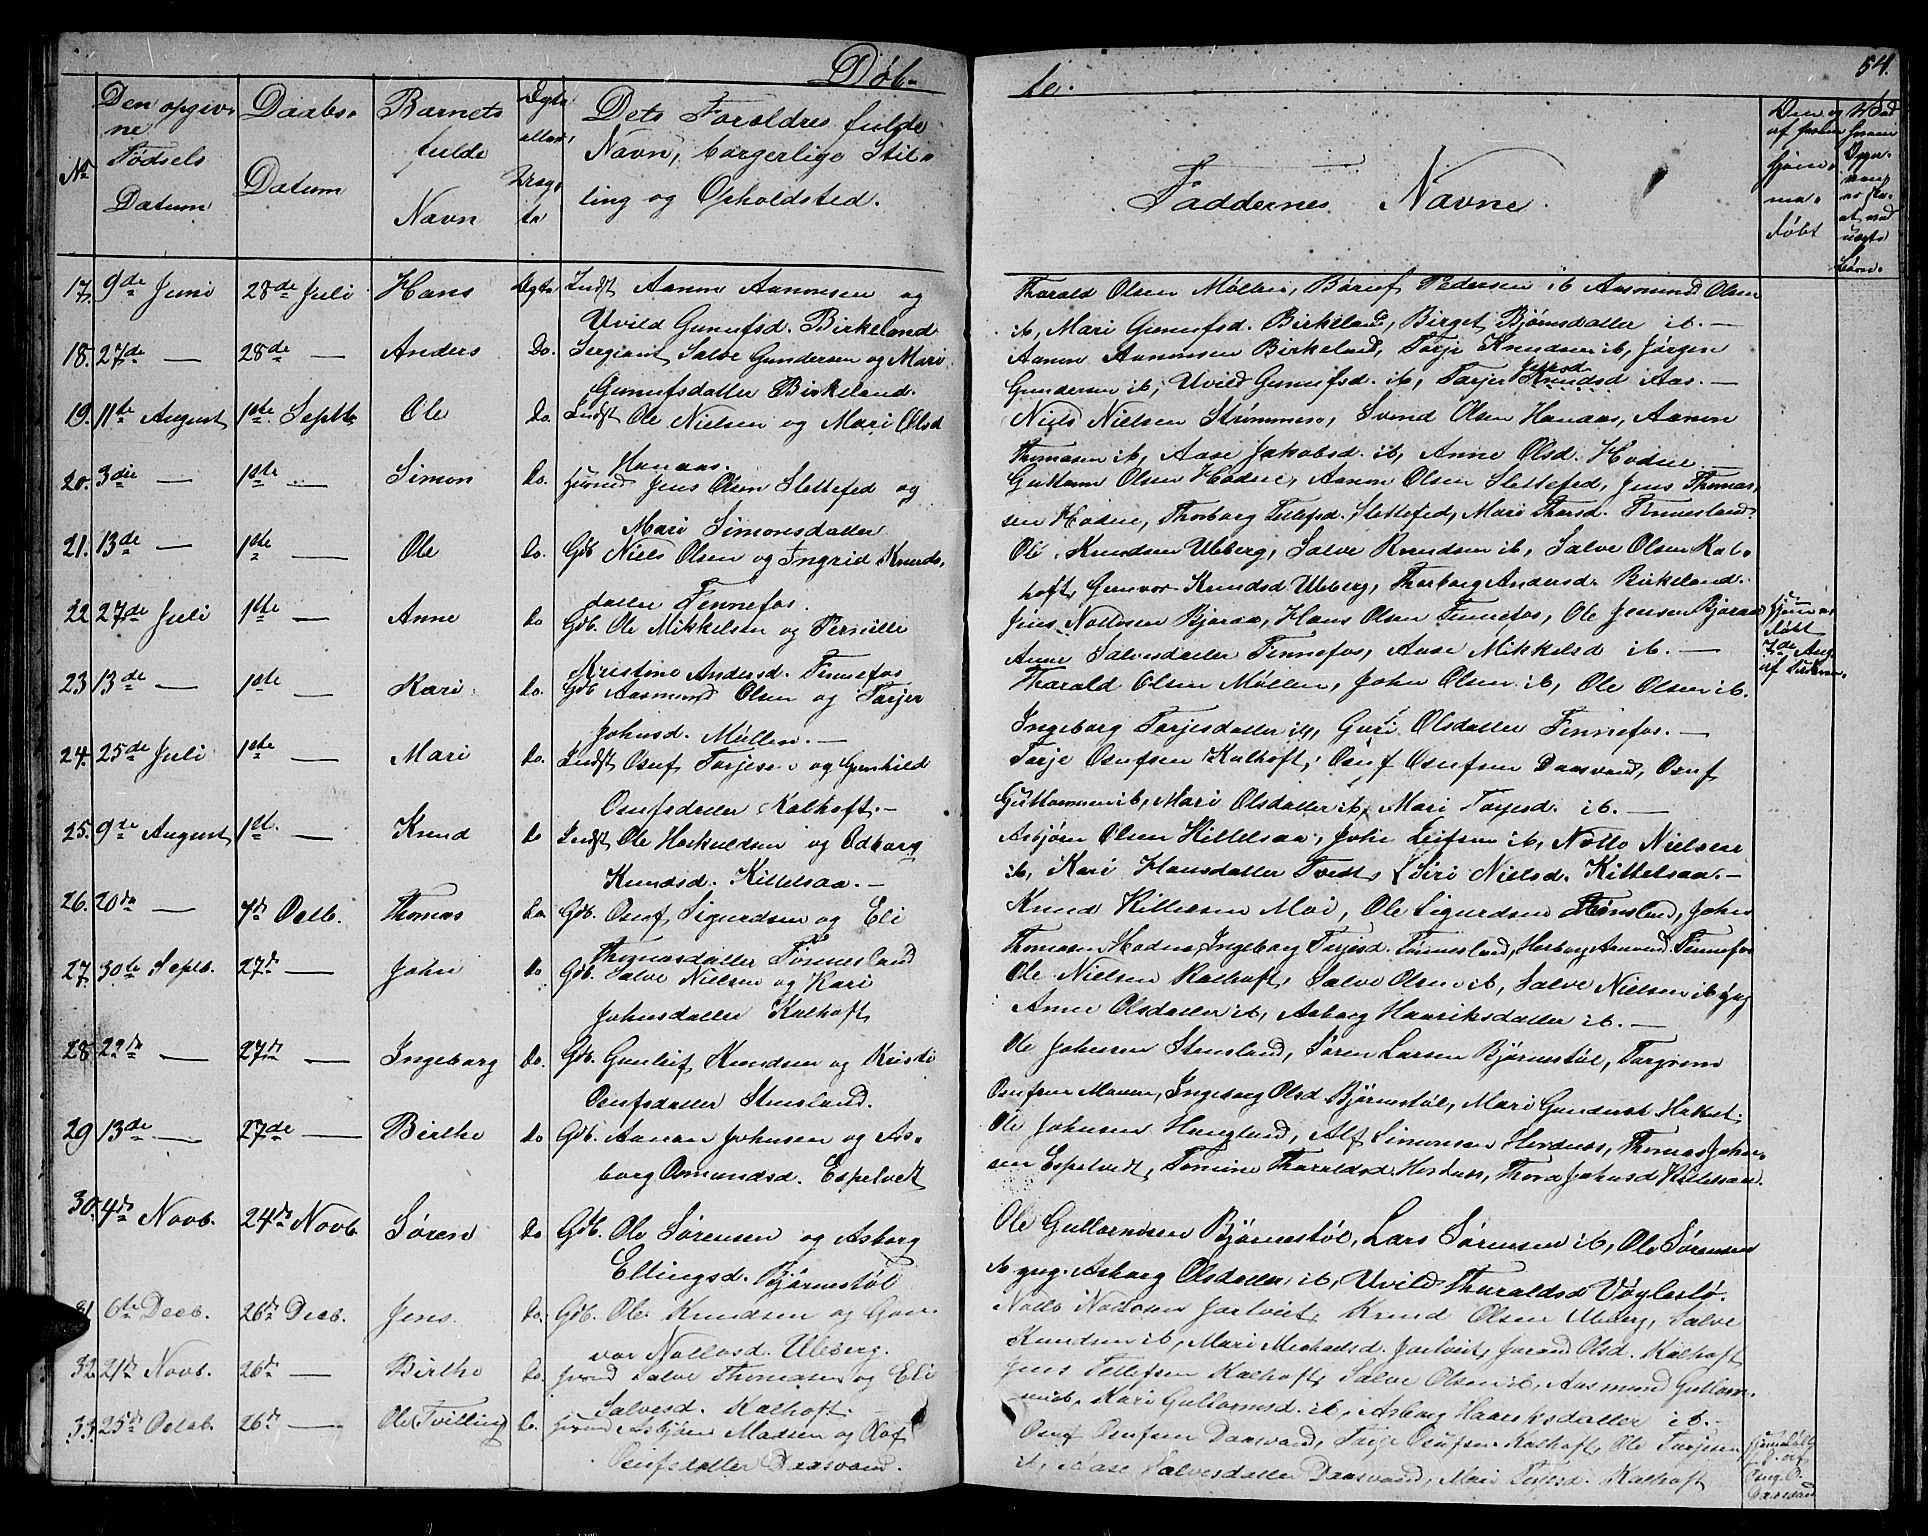 Døb-
te.
54.
No.
Den opgiv-
ne
Fødsels
Datum
Daabs-
Datum
Barnets
fulde
Navn
Ægte
eller
Uæg-
te
Dets Foreldres fulde
Navn, borgerlige Stil-
ling og Opholdsted.
Faddernes Navne.
17. 9de Juni 28de Juli Hans Ægte Indst Aanon Aanonsen og
Uvild Gunufsd. Birkeland
Tharald Olsen Møllen, Børuf Pedersen ib Aasmund Olsen
ib, Mari Gunufsd. Birkeland, Birget Bjørnsdatter ib. —
18. 27de — 28de — Anders Do. Sergiant Salve Gundersen og Mari
Gunufsdatter Birkeland.
Aanon Aanonsen Birkeland, Torje Knudsen ib, Jørgen
Gundersen ib, Uvild Gunufsd. ib, Torjer Knudsd Aas. —
19. 11te August 1ste Septb. Ole Do. Indst Ole Nielsen og Mari Olsd
Hanaas.
Niels Nielsen Strømmen, Svend Olsen Hanaas, Aanon
Thomasen ib, Aase Jakobsd. ib, Anne Olsd. Hodne
20. 3die — 1ste — Simon Do. Huusmd Jens Olsen Slettefed og
Mari Simonsdatter
Guttorm Olsen Hodne, Aanon Olsen Slettefed, Jens Thomas-
sen Hodne, Thorborg Tellefsd. Slettefed, Mari Thorsd. Tønnesland.
21. 13de — 1ste — Ole Do. Gdb Niels Olsen og Ingrid Knuds-
datter Finnefos.
Ole Knudsen Uleberg, Salve Knudsen ib, Salve Olsen Kal-
hoft, Gunvor Knudsd Uleberg, Thorborg Andersd. Birkeland.
22 27de Juli 1ste — Anne Do Gdb. Ole Mikkelsen og Pernille
Kristine Andersd. Finnefos
Jens Nottosen Bjoraa, Hans Olsen Finnefos, Ole Jensen Bjoraa
Anne Salvesdatter Finnefos, Aase Mikkelsd ib. —
Hjemme-
døbt
7de Aug.
23 13de — 1ste — Kari Do. Gdb Aasmund Olsen og Torjer
Johnsd. Møllen. —
Tharald Olsen Møllen, John Olsen ib, Ole Olsen ib.
Ingeborg Torjesdatter ib, Guri Olsdatter Finnefos. —
24. 25de Juli 1ste — Mari Do. Indst Osuf Torjesen og Gunhild
Osufsdatter Kalhoft. —
Torje Osufsen Kalhoft, Osuf Osufsen Daasvand, Osuf
Guttormsen ib, Mari Olsdatter ib, Mari Torjesd. ib. —
25. 9de August 1st. — Knud Do Indst Ole Herkuldsen og Odborg
Knudsd. Kittelsaa. —
Asbjørn Olsen Kittelsaa, John Leifsen ib, Notto Nielsen
ib, Kari Hansdatter Tvedt, Siri Nielsd. Kittelsaa. —
26. 20de — 7d Octb. Thomas Do Gdb. Osuf Sigurdsen og Eli
Thomasdatter Tønnesland
Knud Kittelsen Moi, Ole Sigurdsen Tønnesland, John
Thomasen Hodne, Ingeborg Torjesd. Tønnesland, Herborg Aanonsd. Finnefos
27. 30te Septb. 27d — John Do Gdb. Salve Nielsen og Kari
Johnsdatter Kalhoft
Ole Nielsen Kalhoft, Salve Olsen ib, Salve Nielsen ib gug
Anne Olsdatter ib, Asborg Haariksdatter ib. —
28. 22de — 27de — Ingeborg Do. Gdb. Gunleif Knudsen og Kristi
Osufsdatter Stensland.
Ole Johnsen Stensland, Søren Larsen Bjørnestøl, Torgrim
Osufsen Moseen, Ingeborg Olsd Bjørnestøl, Mari Gundersd.
29 13de — 27de — Birthe Do Gdb. Aanon Johnsen og As-
borg Osmundsd. Espetvedt
Ole Johnsen Haugland, Alf Simonsen Hordnes, Thomas John-
sen Espetvedt, Tomine Tharaldsd. Hordnes, Thora Johnsd Kittelsaa.
30. 4de Novb. 24de Novb. Søren Do Gdb. Ole Sørensen og Asborg
Ellingsd. Bjørnestøl
Ole Guttormsen Bjørnestøl, Lars Sørensen ib, Ole Sørensen
ib gug. Asborg Olsdatter ib, Uvild Tharaldsd Vøglestø.
31 6te Decb. 26de Decb. Jens Do. Gdb. Ole Knudsen og Gun-
vor Nottosd. Uleberg.
Notto Nottosen Jortveit, Knud Olsen Uleberg, Salve
Knudsen ib, Mari Michaelsd. Jortveit, Jorand Olsd. Kalhoft
32. 21de Novb. 26de — Birthe Do. Huusmd Salve Thomasen og Eli
Salvesd. Kalhoft. —
Jens Tellefsen Kalhoft, Salve Olsen ib, Aasmund Guttorm-
sen ib, Kari Guttormsd. ib, Asborg Haariksdatter ib. —
33. 25de Octob. 26de — Ole (Tvilling) Do. Huusmd Asbjørn Madsen og
Osufsdatter Daasvand.
Osuf Osufsen Daasvand, Torje Osufsen Kalhoft, Ole Torjesen
ib, Aase Salvesdatter Daasvand, Mari Torjesd. Kalhoft
Hjemmedøbt